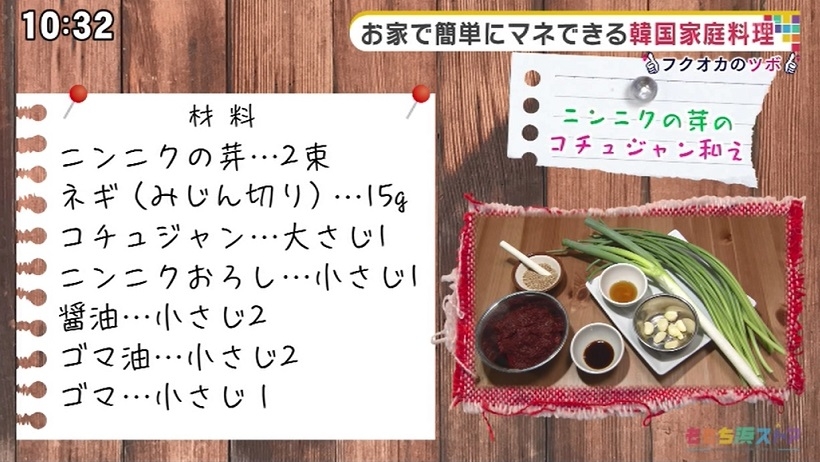 10:32
お家で簡単にマネできる韓国家庭料理
フクオカのツボ
ニンニクの芽の
コチュジャン和え
材料
ニンニクの芽…2束
ネギ（みじん切り）…15g
コチュジャン…大さじ1
ニンニクおろし…小さじ1
醤油…小さじ2
ゴマ油…小さじ2
ゴマ…小さじ1
ももち浜ストア